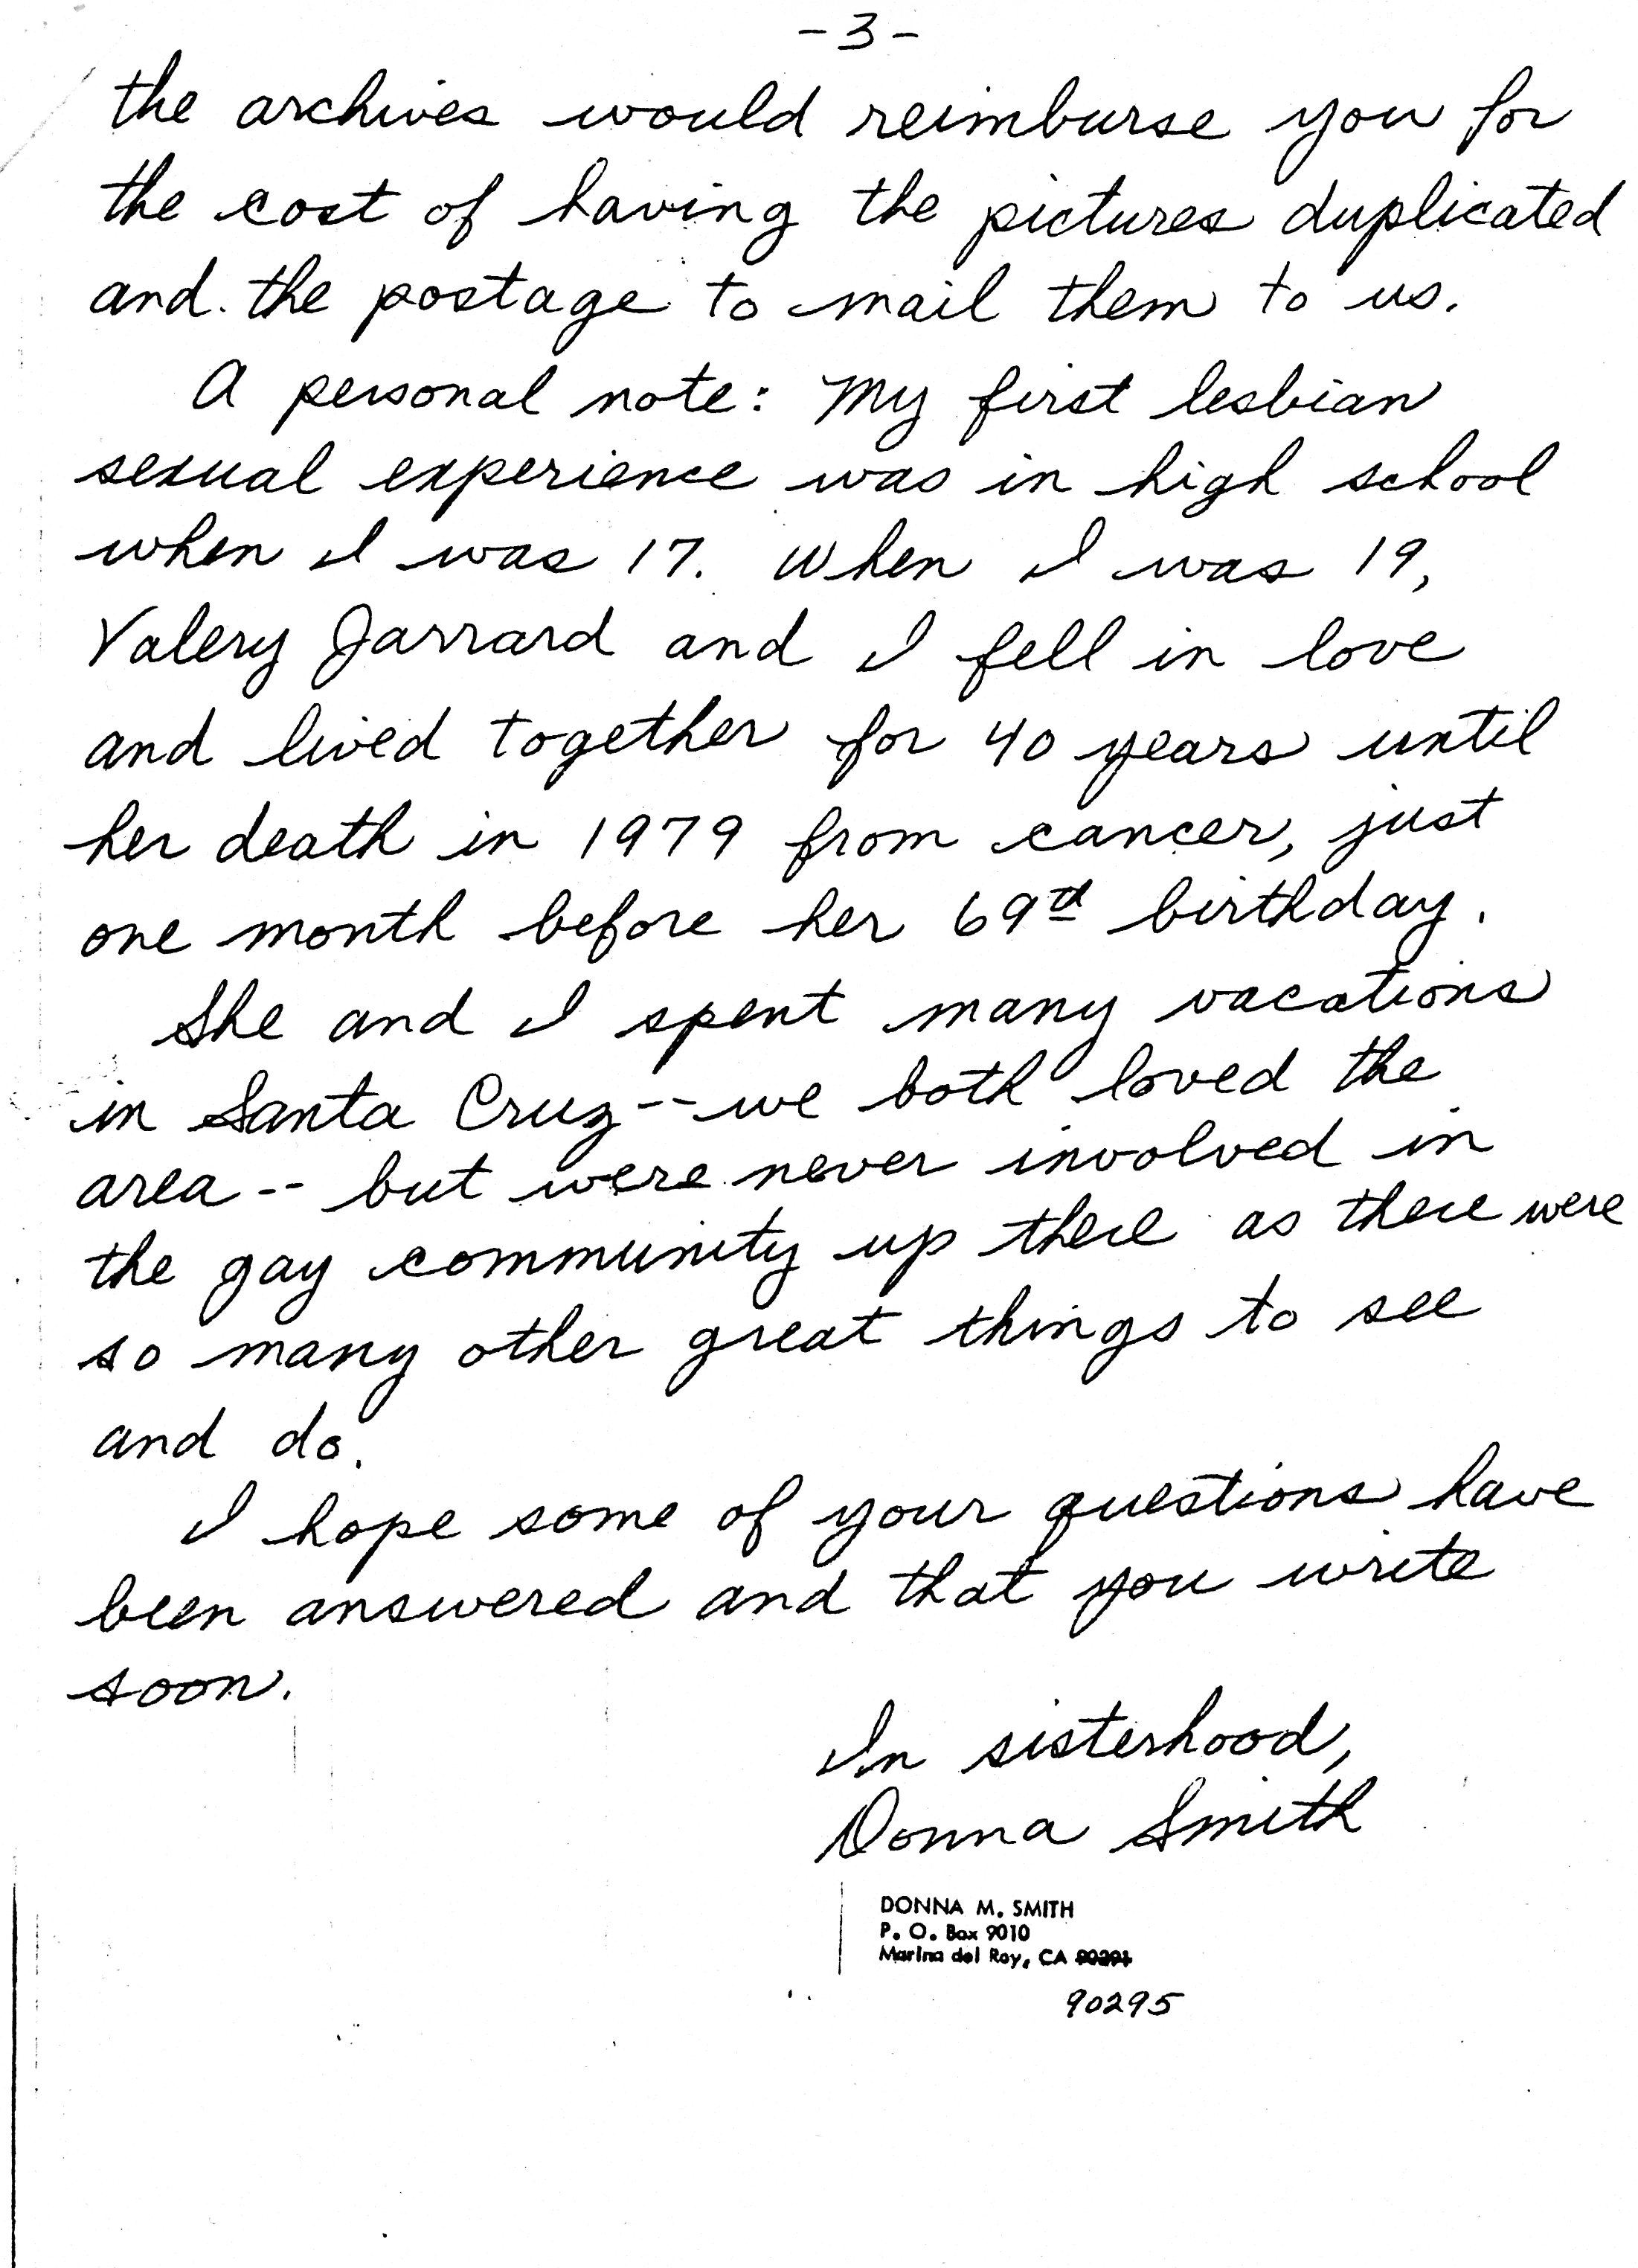 -3-
the archives would reimburse you for
the cost of having the pictures duplicated
and the postage to mail them to us.
A personal note: My first lesbian
sexual experience was in high school
when I was 17. When I was 19,
Valery Jarrard and I fell in love
and lived together for 40 years until
her death in 1979 from cancer, just
one month before her 69d birthday.
She and I spent many vacations
in Santa Cruz--we both loved the
area -- but were never involved in
the gay community up there as there were
so many other great things to see
and do.
I hope some of your questions have
been answered and that you write
soon.
In sisterhood,
Donna Smith
DONNA M. SMITH
P. O. Box 9010
Marina del Rey, CA 90291
90295